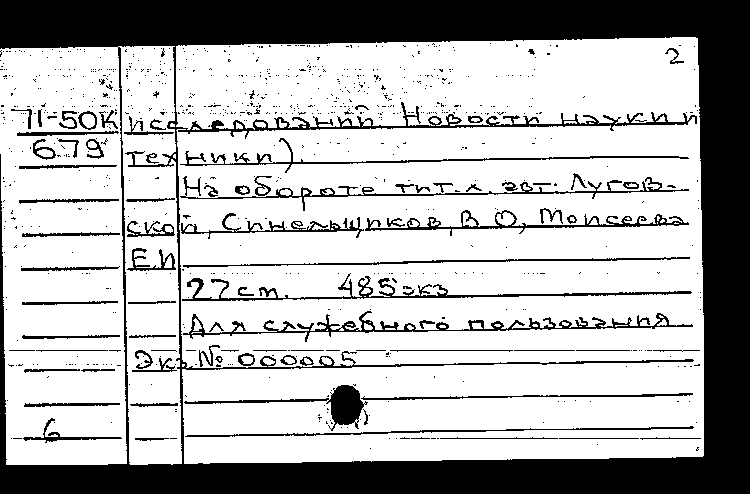 2
71-50К исследований Новости науки и
679 техники).
На обороте тит.л. авт: Лугов-
ской, Синельщиков, В О, Моисеева
Е.И
27 см. 485 экз
Для служебного пользования
Экз № 000005
6